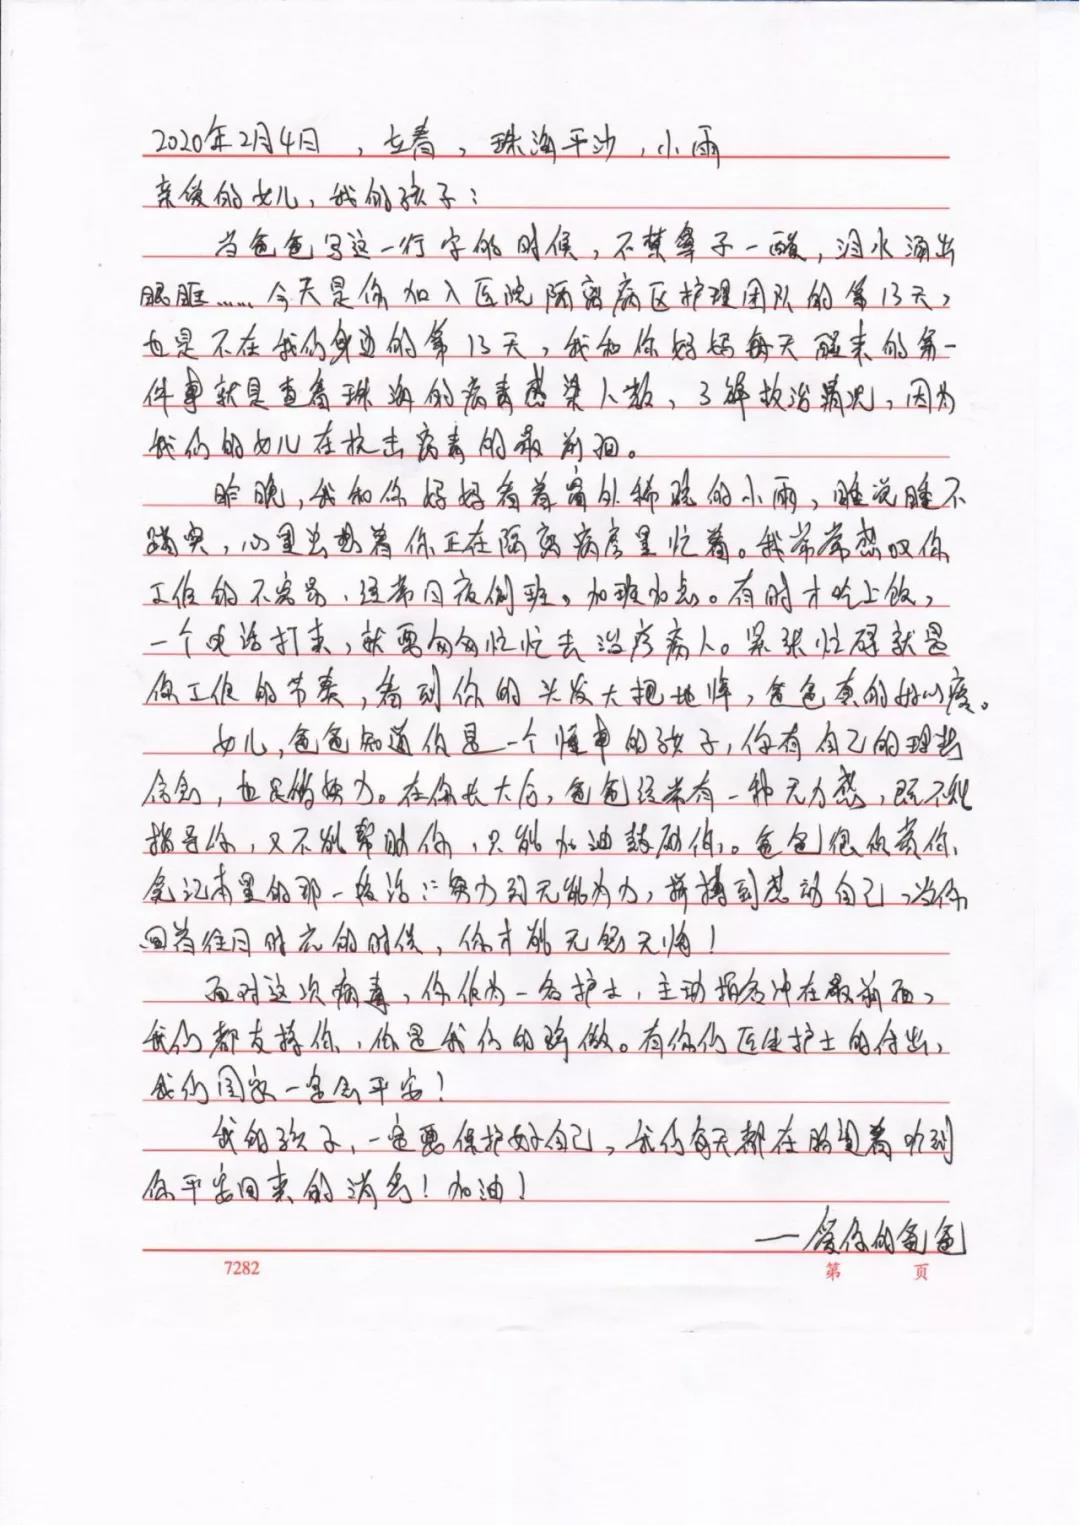 2020年2月4日，立春，珠海平沙，小雨
亲爱的女儿，我的孩子：
当爸爸写这一行字的时候，不禁鼻子一酸，泪水涌出
眼眶……今天是你加入医院隔离病区护理团队的第13天，
也是不在我们身边的第13天，我和你妈妈每天醒来的第一
件事就是查看珠海的病毒感染人数、了解救治情况，因为
我们的女儿在抗击病毒的最前沿。
昨晚，我和你妈妈看着窗外稀疏的小雨，睡说睡不
踏实，心里总想着你正在隔离病房里忙着。我常常感叹你
工作的不容易，经常日夜倒班、加班加点。有时才吃上饭，
一个电话打来，就要匆匆忙忙去治疗病人。紧张忙碌就是
你工作的节奏，看到你的头发大把地掉，爸爸真的好心疼。
女儿，爸爸知道你是一个懂事的孩子，你有自己的理想
信念，也足够努力。在你长大后，爸爸经常有一种无力感，既不能
指导你，又不能帮助你，只能加油鼓励你。爸爸很欣赏你
笔记本里的那一段话：努力到无能为力，拼搏到感动自己，当你
回首往日时光的时候，你才能无怨无悔！
面对这次病毒，你作为一名护士，主动报名冲在最前面，
我们都支持你，你是我们的骄傲。有你们医生护士的付出，
我们国家一定会平安！
我的孩子，一定要保护好自己，我们每天都在盼望着听到
你平安回来的消息！加油！
——爱你的爸爸
7282 第 页